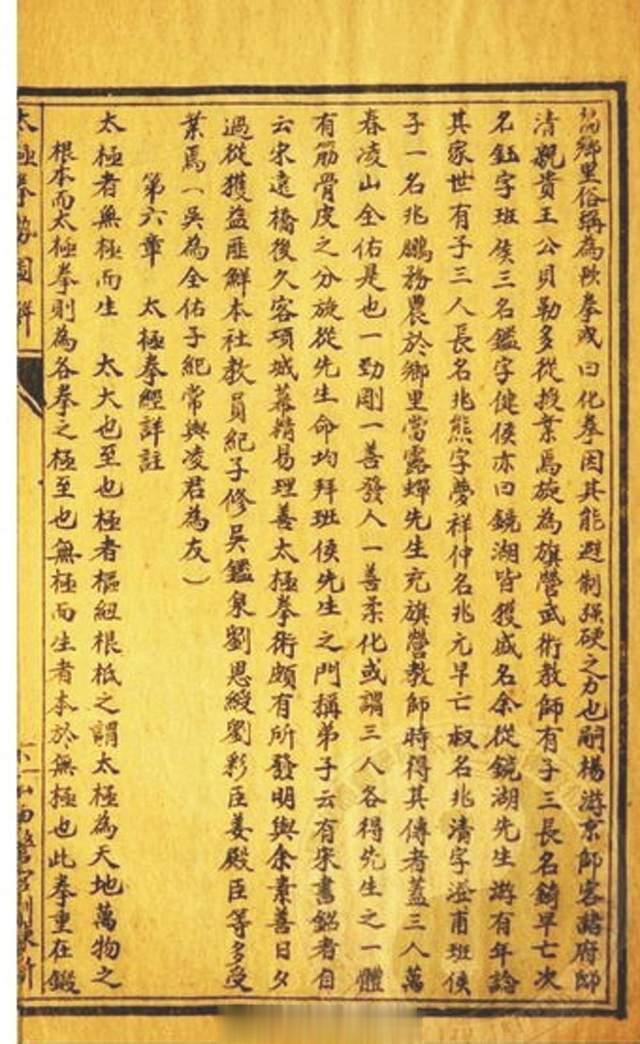 鄉里俗稱為軟拳或曰化拳因其能避制强硬之力也嗣楊游京師客諸府邸
清親貴王公貝勒多從授業焉旋為旗營武術教師有子三長名錡早亡次
名鈺字班侯三名鑑字健侯亦曰鏡湖皆獲盛名余從鏡湖先生游有年諗
其家世有子三人長名兆熊字夢祥仲名兆元早亡叔名兆清字澄甫班侯
子一名兆鵬務農於鄉里當露蟬先生充旗營教師時得其傳者蓋三人萬
春凌山全佑是也一勁剛一善發人一善柔化或謂三人各得先生之一體
有筋骨皮之分旋從先生命均拜班侯先生之門稱弟子云有宋書銘者自
云宋遠橋後久客項城幕精易理善太極拳術頗有所發明與余素善日夕
過從獲益匪鮮本社教員紀子修吳鑑泉劉恩綬劉彩臣姜殿臣等多受
業焉（吳為全佑子紀常與凌君為友）
第六章 太極拳經詳註
太極者無極而生 太大也至也極者樞紐根柢之謂太極為天地萬物之
根本而太極拳則為各拳之極至也無極而生者本於無極也此拳重在鍛
太極拳勢圖解
山西警官訓練所